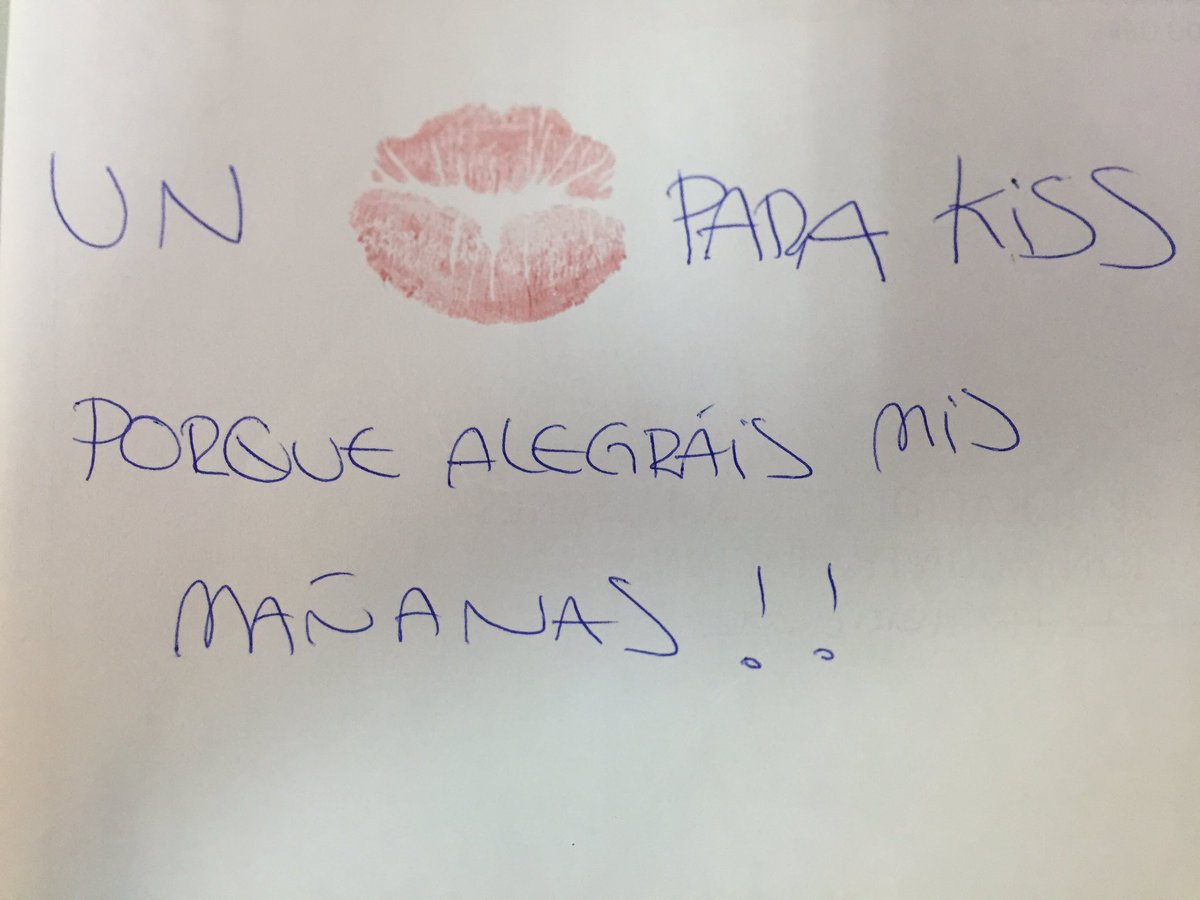 UN PARA KISS
PORQUE ALEGRÁIS MIS
MAÑANAS!!